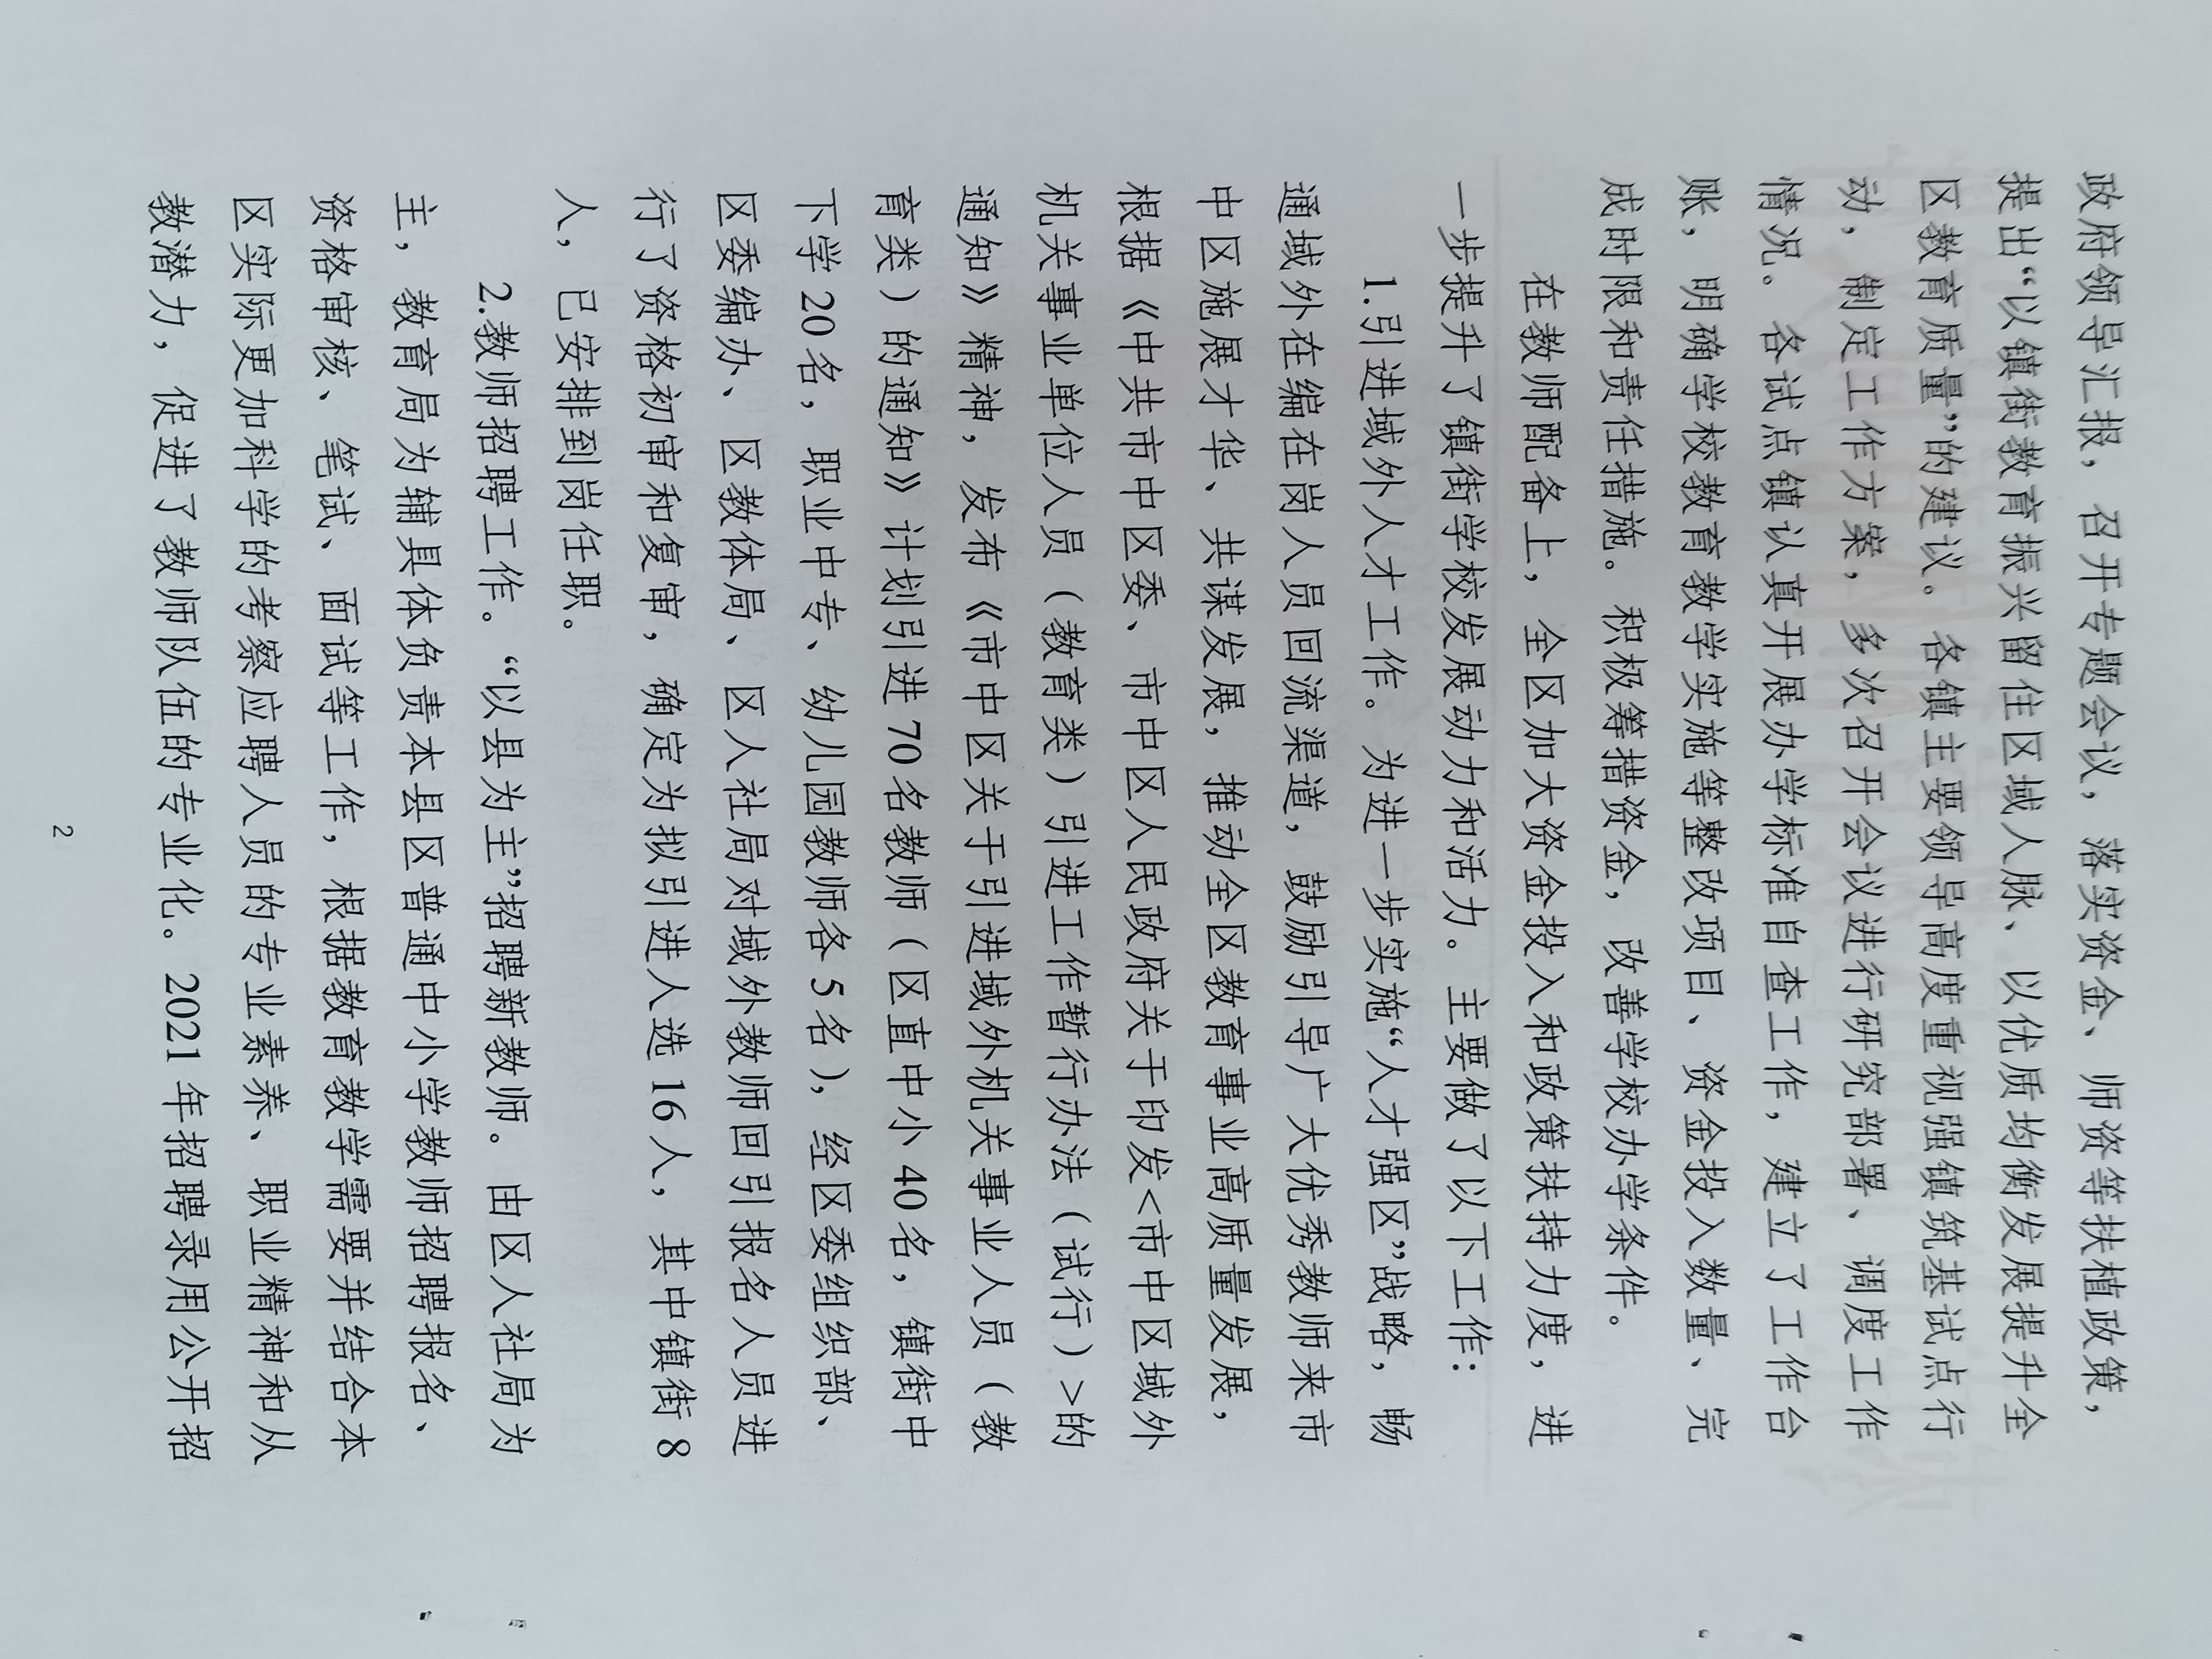 政府领导汇报，召开专题会议，落实资金、师资等扶植政策，
提出“以镇街教育振兴留住区域人脉、以优质均衡发展提升全
区教育质量”的建议。各镇主要领导高度重视强镇筑基试点行
动，制定工作方案，多次召开会议进行研究部署、调度工作
情况。各试点镇认真开展办学标准自查工作，建立了工作台
账，明确学校教育教学实施等整改项目、资金投入数量、完
成时限和责任措施。积极筹措资金，改善学校办学条件。
在教师配备上，全区加大资金投入和政策扶持力度，进
一步提升了镇街学校发展动力和活力。主要做了以下工作：
1.引进域外人才工作。为进一步实施“人才强区”战略，畅
通域外在编在岗人员回流渠道，鼓励引导广大优秀教师来市
中区施展才华、共谋发展，推动全区教育事业高质量发展，
根据《中共市中区委、市中区人民政府关于印发<市中区域外
机关事业单位人员（教育类）引进工作暂行办法（试行）>的
通知》精神，发布《市中区关于引进域外机关事业人员（教
育类）的通知》计划引进70名教师（区直中小40名，镇街中
下学20名，职业中专、幼儿园教师各5名），经区委组织部、
区委编办、区教体局、区人社局对域外教师回引报名人员进
行了资格初审和复审，确定为拟引进人选16人，其中镇街8
人，已安排到岗任职。
2.教师招聘工作。“以县为主”招聘新教师。由区人社局为
主，教育局为辅具体负责本县区普通中小学教师招聘报名、
资格审核、笔试、面试等工作，根据教育教学需要并结合本
区实际更加科学的考察应聘人员的专业素养、职业精神和从
教潜力，促进了教师队伍的专业化。2021年招聘录用公开招
2